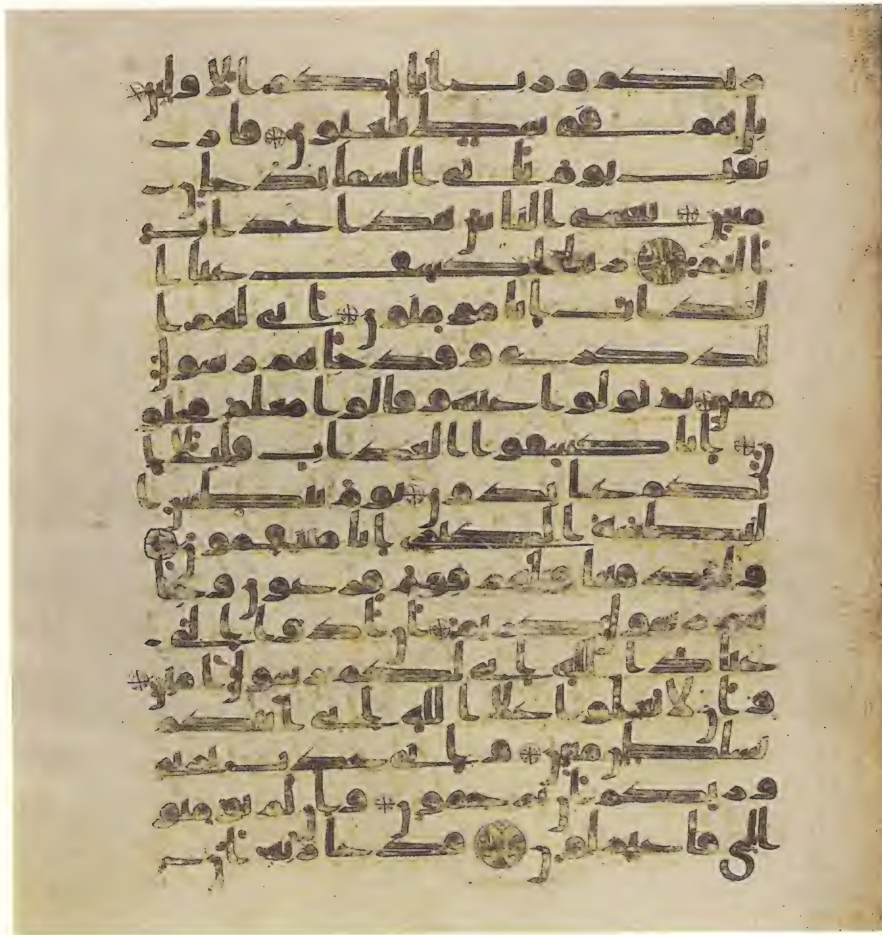 ربكم ورب ابايكم الاولين
بل هم في شك يلعبون فار
تقب يوم تاتي السما بدخان
مبين يغشى الناس هذا عذاب
اليم ربنا اكشف عنا ا
لعذاب انا مومنون انى لهم ا
لذكرى وقد جاهم رسول
مبين ثم تولوا عنه وقالوا معلم مجنو
ن انا كشفوا العذاب قليلا ا
نكم عايدون يوم نبطش ا
لبطشة الكبرى انا منتقمون
ولقد فتنا قبلهم قوم فرعون وجا
هم رسول كريم ان ادوا الي
عباد الله اني لكم رسول امين
وان لا تعلوا على الله اني اتيكم
بسلطن مبين واني عذت بربي
وربكم ان ترجمون وان لم تومنو
ا لي فاعتزلون فدعا ربه ان